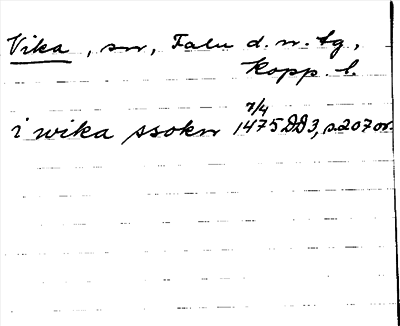 Vika, sn, Falu d. n. tg,
Kopp. l.
7/4
i wika ssokn 1475 DD3, s. 207 or.